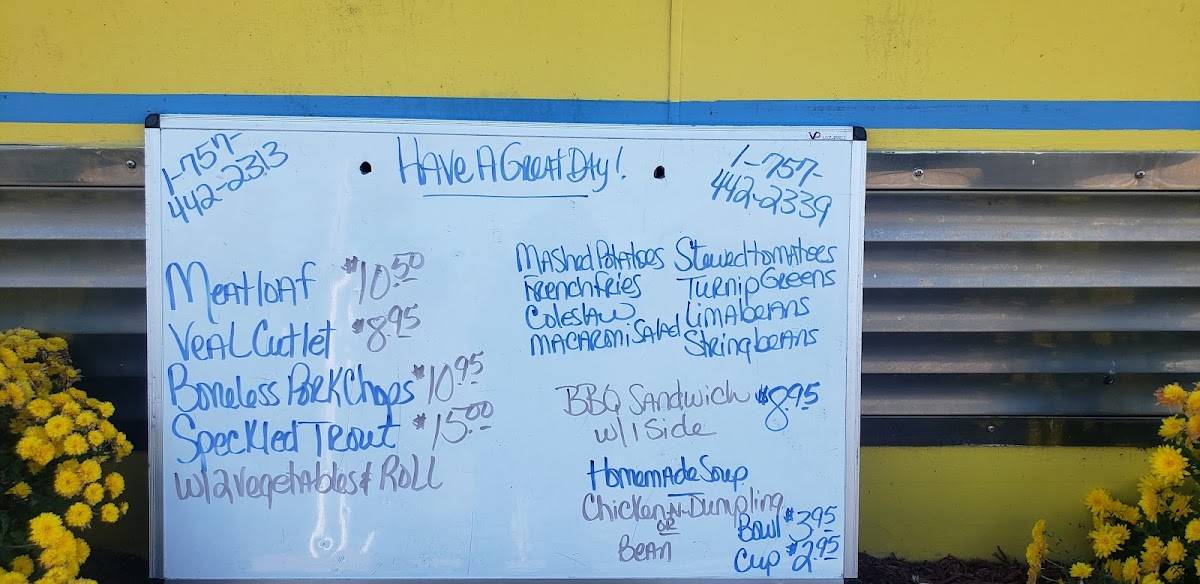 1-757-
442-2313
Have A Great Day!
1-757-
442-2339
Meatloaf $10.50
Veal Cutlet $8.95
Boneless Pork Chops $10.95
Speckled Trout $15.00
w/2 Vegetables & Roll
Mashed Potatoes Stewed Tomatoes
French Fries Turnip Greens
Coleslaw Lima beans
Macaroni Salad String beans
BBQ Sandwich $8.95
w/1 Side
Homemade Soup
Chicken-N-Dumpling
or
Bean
Bowl $3.95
Cup $2.95